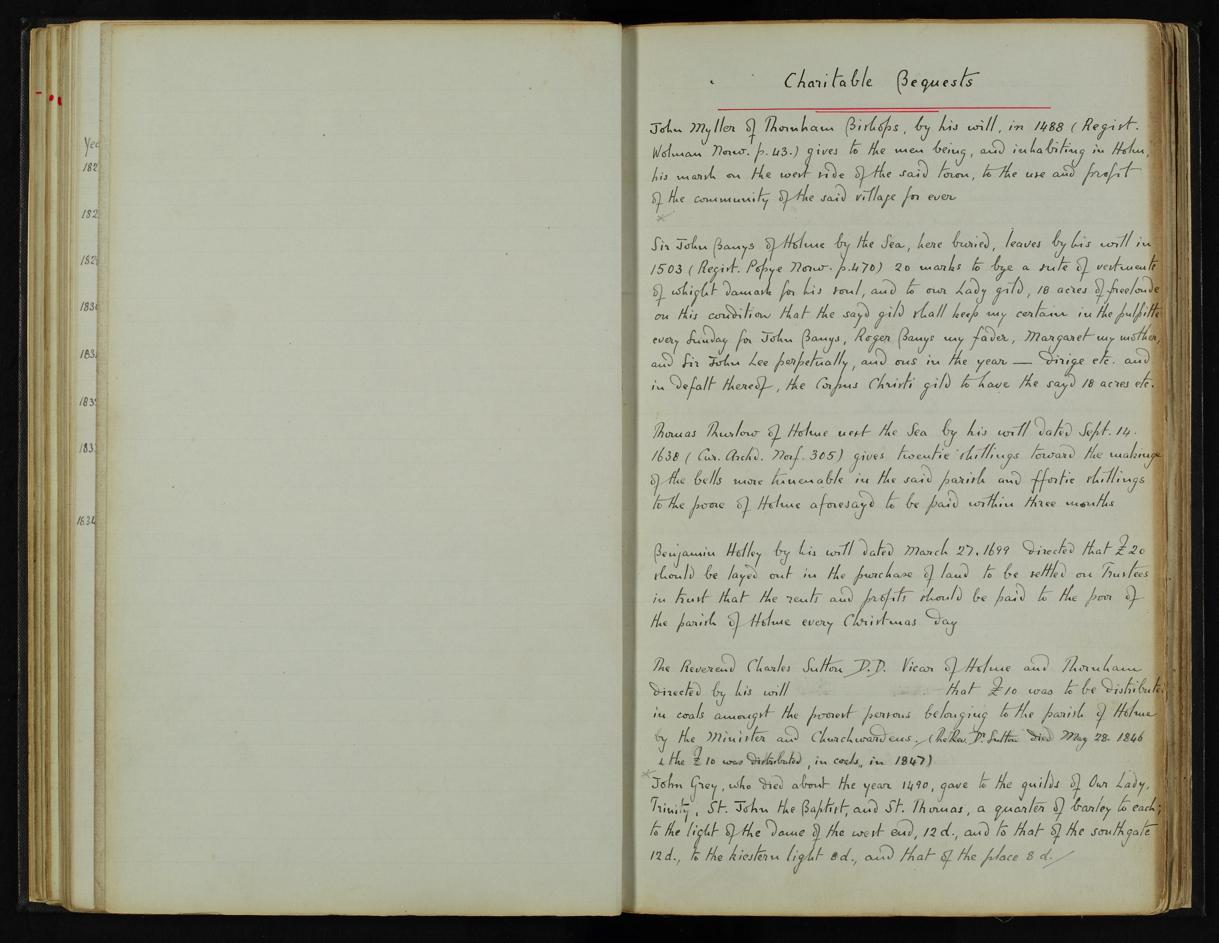 Yea
182
182
182
183
183
183
183
1834
Charitable Bequests
John Myller of Thornham Bishops, by his will, in 1488 (Regist.
Wolman Norw. p. 43.) gives to the men being, and inhabiting in Holm,
his marsh on the west side of the said town, to the use and profit
of the community of the said village for ever
Sir John Banys of Holme by the Sea, here buried, leaves by his will in
1503 (Regist. Popye Norw. p. 470) 20 marks to bye a sute of vestments
of whight damask for his soul, and to owr Lady gild, 18 acres of freelonde
on this condition that the sayd gild shall keep my certain in the pulpitte
every Sunday for John Banys, Roger Banys my fader, Margaret my mother,
and Sir John Lee perpetually, and ons in the year — Dirige etc. and
in defalt thereof, the Corpus Christi gild to have the sayd 18 acres etc.
Thomas Thurlow of Holme next the Sea by his will dated Sept. 14.
1638 (Cur. Archd. Norf. 305) gives twentie shillings toward the makinge
of the bells more tuneable in the said parish and ffortie shillings
to the poore of Holme aforesayd to be paid within three months
Benjamin Holley by his will dated March 27. 1699 directed that £20
should be layed out in the purchase of land to be settled on Trustees
in trust that the rents and profits should be paid to the poor of
the parish of Holme every Christmas day
The Reverend Charles Sutton D.D. Vicar of Holme and Thornham
directed by his will that £10 was to be distributed
in coals amongst the poorest persons belonging to the parish of Holme
by the Minister and Churchwardens. (the Rev. Dr. Sutton died May 28. 1846
& the £10 was distributed, in coals, in 1847)
John Grey, who died about the year 1490, gave to the guilds of Our Lady,
Trinity, St. John the Baptist, and St. Thomas, a quarter of barley to each;
to the light of the dame of the west end, 12 d., and to that of the southgate
12 d., to the kiestern light 8 d., and that of the place 8 d.